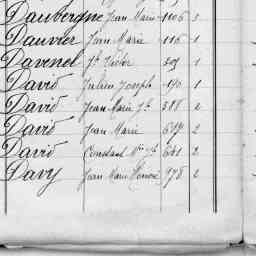 Daubergne Jean Marie 1106 3
Dauvier Jean Marie 116 1
Davenel 1
David Julien Joseph 190 1
David Jean Marie 388 2
David Jean Marie 2
David Constant 2
Davy Jean Marie Honoré 978 2